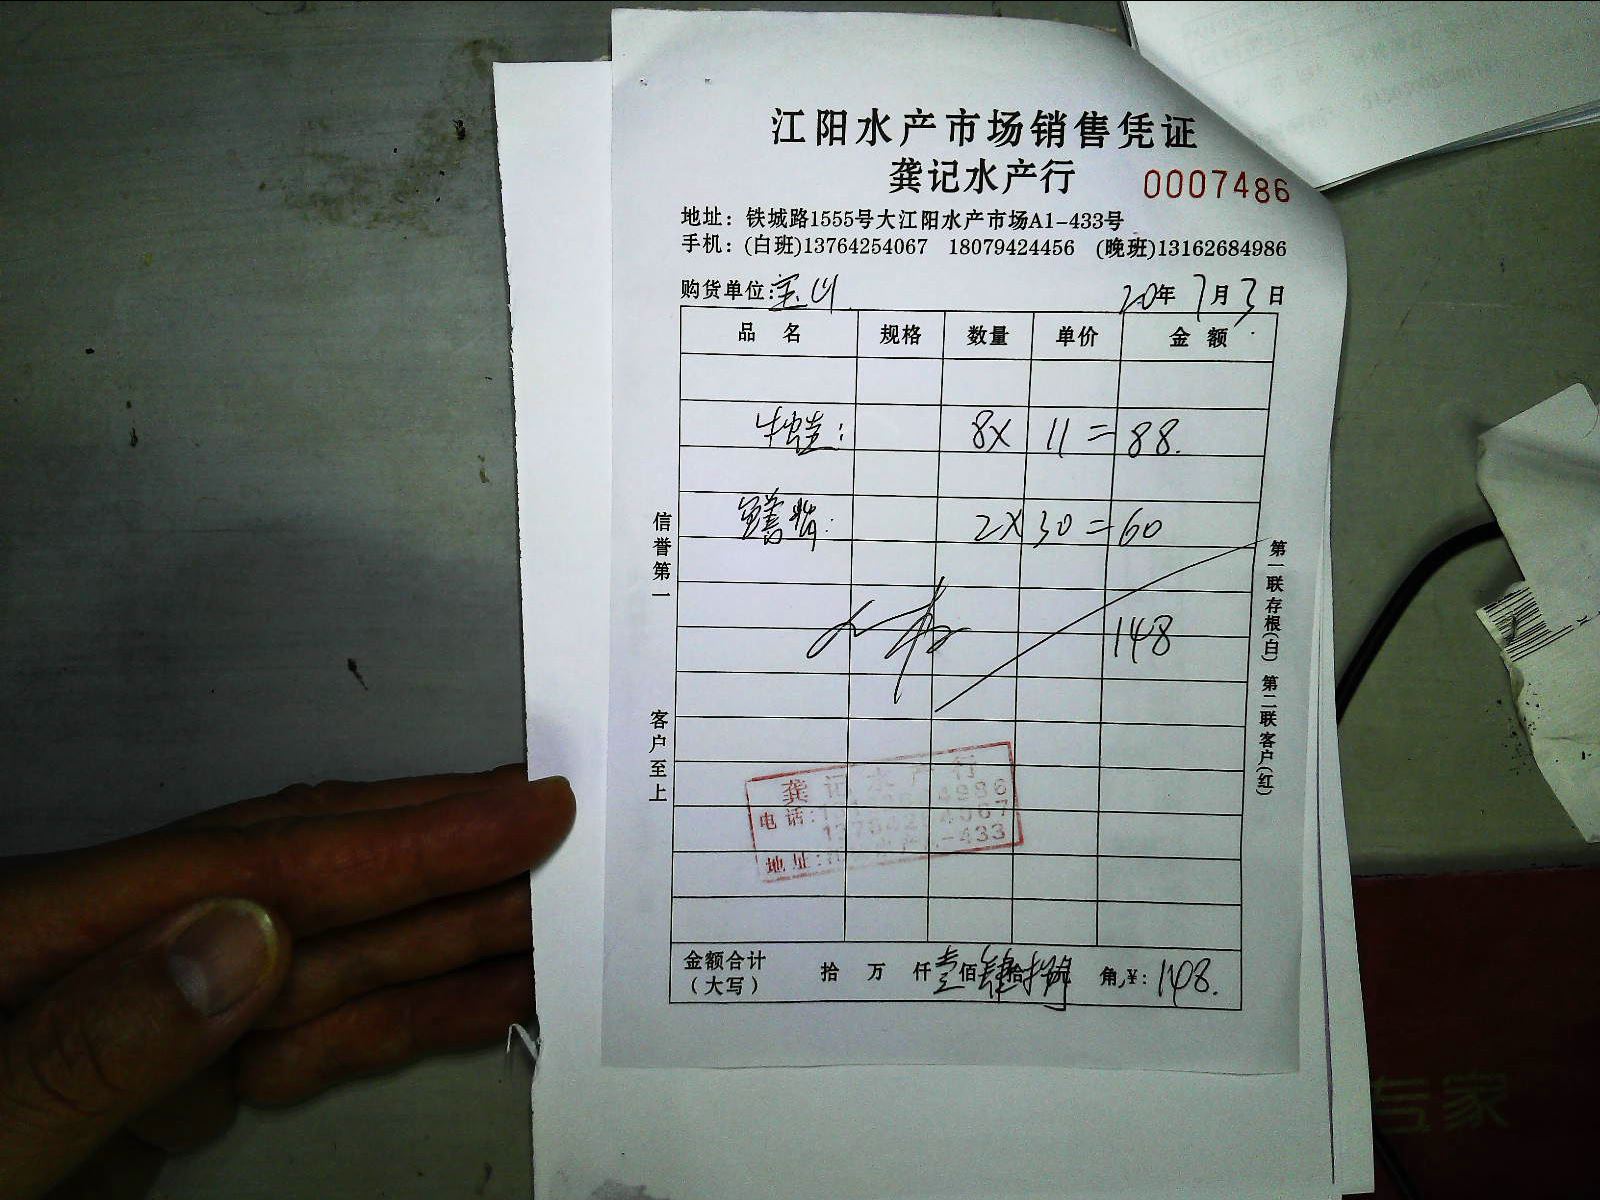 江阳水产市场销售凭证
龚记水产行 0007486
地址：铁城路1555号大江阳水产市场A1-433号
手机：(白班)13764254067 18079424456 (晚班)13162684986
购货单位:宝山 20年7月3日
品 名 规格 数量 单价 金 额
牛蛙: 8× 11= 88.
鳝 2× 30= 60
148
信誉第一
客户至上
第一联存根(白) 第二联客户(红)
龚记水产行
电话: 4986
137642 4067
地址: 水产 -433
金额合计 拾 万 仟壹佰肆拾捌 角,¥: 148.
(大写)
专家